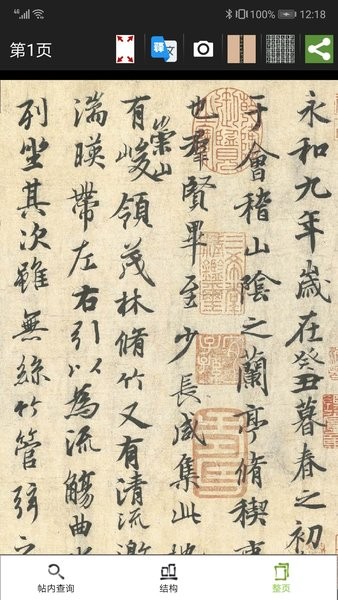 100%
12:18
第1页
释
文
永和九年歲在癸丑暮春之初
于會稽山陰之蘭亭脩禊事
也群賢畢至少長咸集此地
有崇山
峻領茂林脩竹又有清流激
湍暎帶左右引以為流觴曲水
列坐其次雖無絲竹管弦之
帖内查询
结构
整页